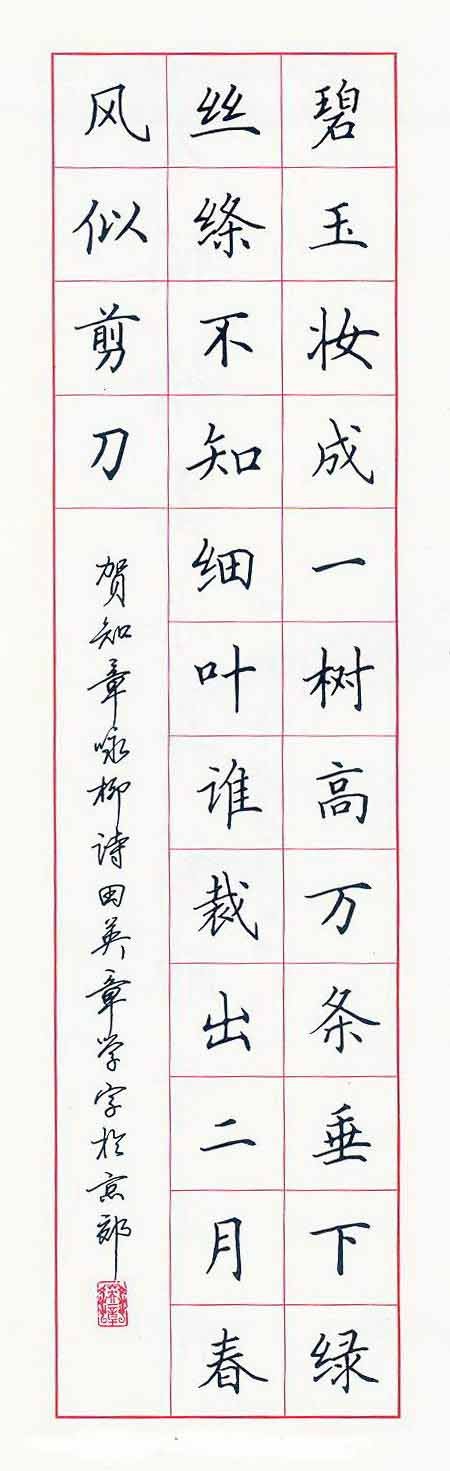 碧玉妆成一树高万条垂下绿
丝绦不知细叶谁裁出二月春
风似剪刀
贺知章咏柳诗田英章学字於京都
英章